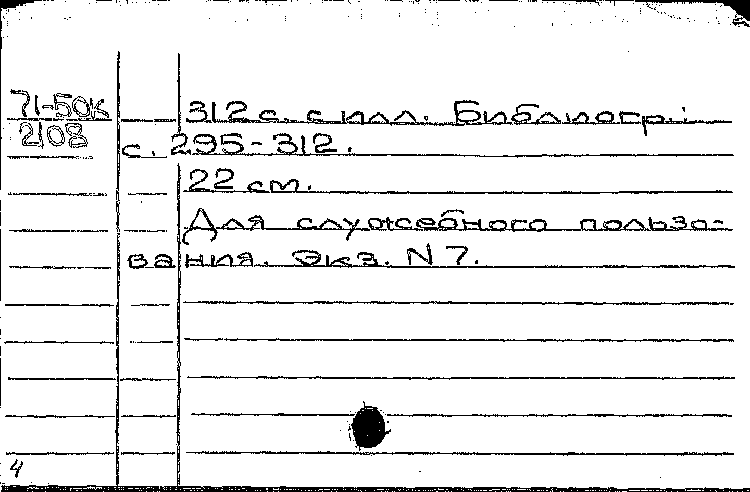 71-50К
2108
312 с. с илл. Библиогр.:
с. 295-312.
22 см.
Для служебного пользо-
вания. Экз. N 7.
4